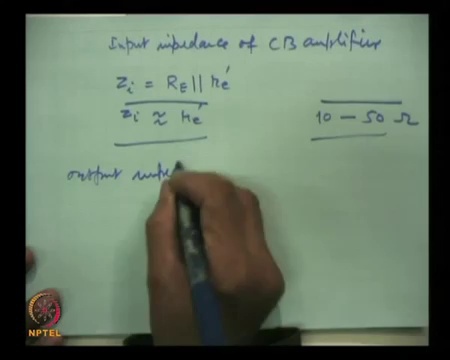 Input impedance of CB amplifier
Zi = RE || re'
Zi ≈ re'
10 - 50 Ω
output impe
NPTEL